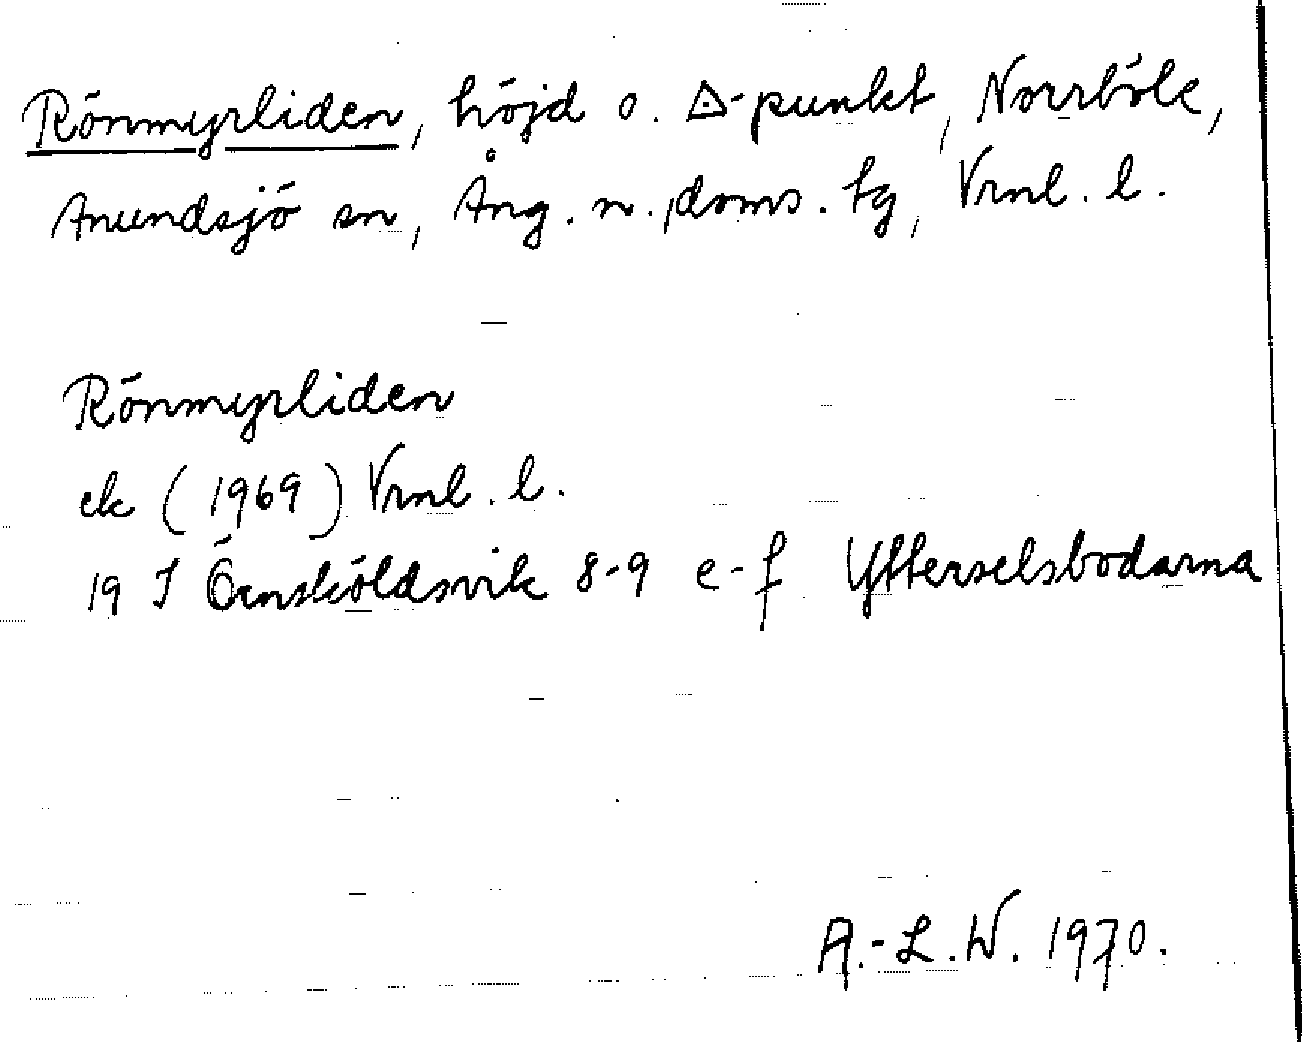 Rönmyrliden, höjd o. △-punkt, Norrböle,
Anundsjö sn, Ång. n. doms. tg, Vrnl. l.
Rönmyrliden
ek (1969) Vrnl. l.
19 I Örnsköldsvik 8-9 e-f Ytterselsbodarna
A.-L.W. 1970.